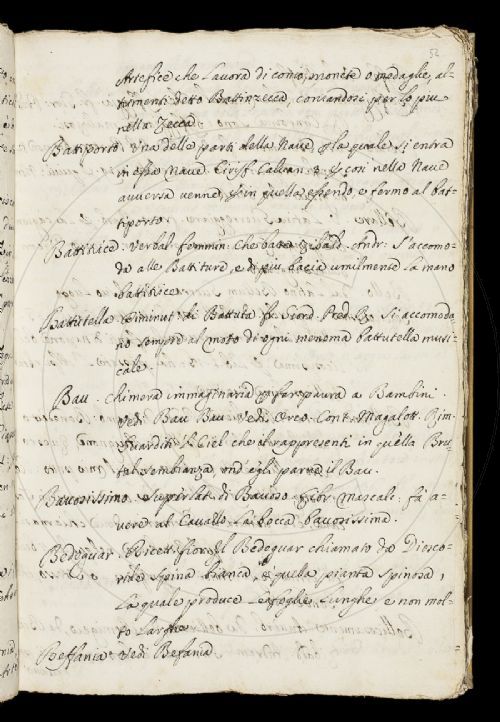 52
Artefice che Lavora di conio, monete o medaglie, al=
trimenti detto Battinzecca, coniandosi per lo piu
nella Zecca
Battiporto. Una delle parti della Nave, per la quale si entra
in essa Nave. Ciriff. Calvan. 3. E così nella Nave
avversa venne, in quella essendo e fermo al bat=
tiporto.
Battitrice. Verbal. femmin. che batte. Andr. S'accomo=
da alle Battiture, e di più bacia umilmente la mano
battitrice.
Battutella. Diminut. di Battuta. Fr. Giord. Pred. R. Si accomoda=
no sempre al moto di ogni menoma battutella musi=
cale.
Bau. chimera immaginaria per far paura a Bambini.
Vedi Bau Bau. Vedi Orco. Cont. Magalott. Rim.
Guarditi il Ciel che ti rappresenti in quella Bru=
tal sembianza, ond'egli parve il Bau.
Bavosissimo. Superlat. di Bavoso. Libr. Mascalc. fa a=
vere al Cavallo la bocca bavosissima.
Bedeguar. Ricett. fior. Il Bedeguar chiamato da Diosco=
ride spina bianca, è quella pianta spinosa,
La quale produce le foglie Lunghe e non mol=
to Larghe
Beffania. Vedi Befania.